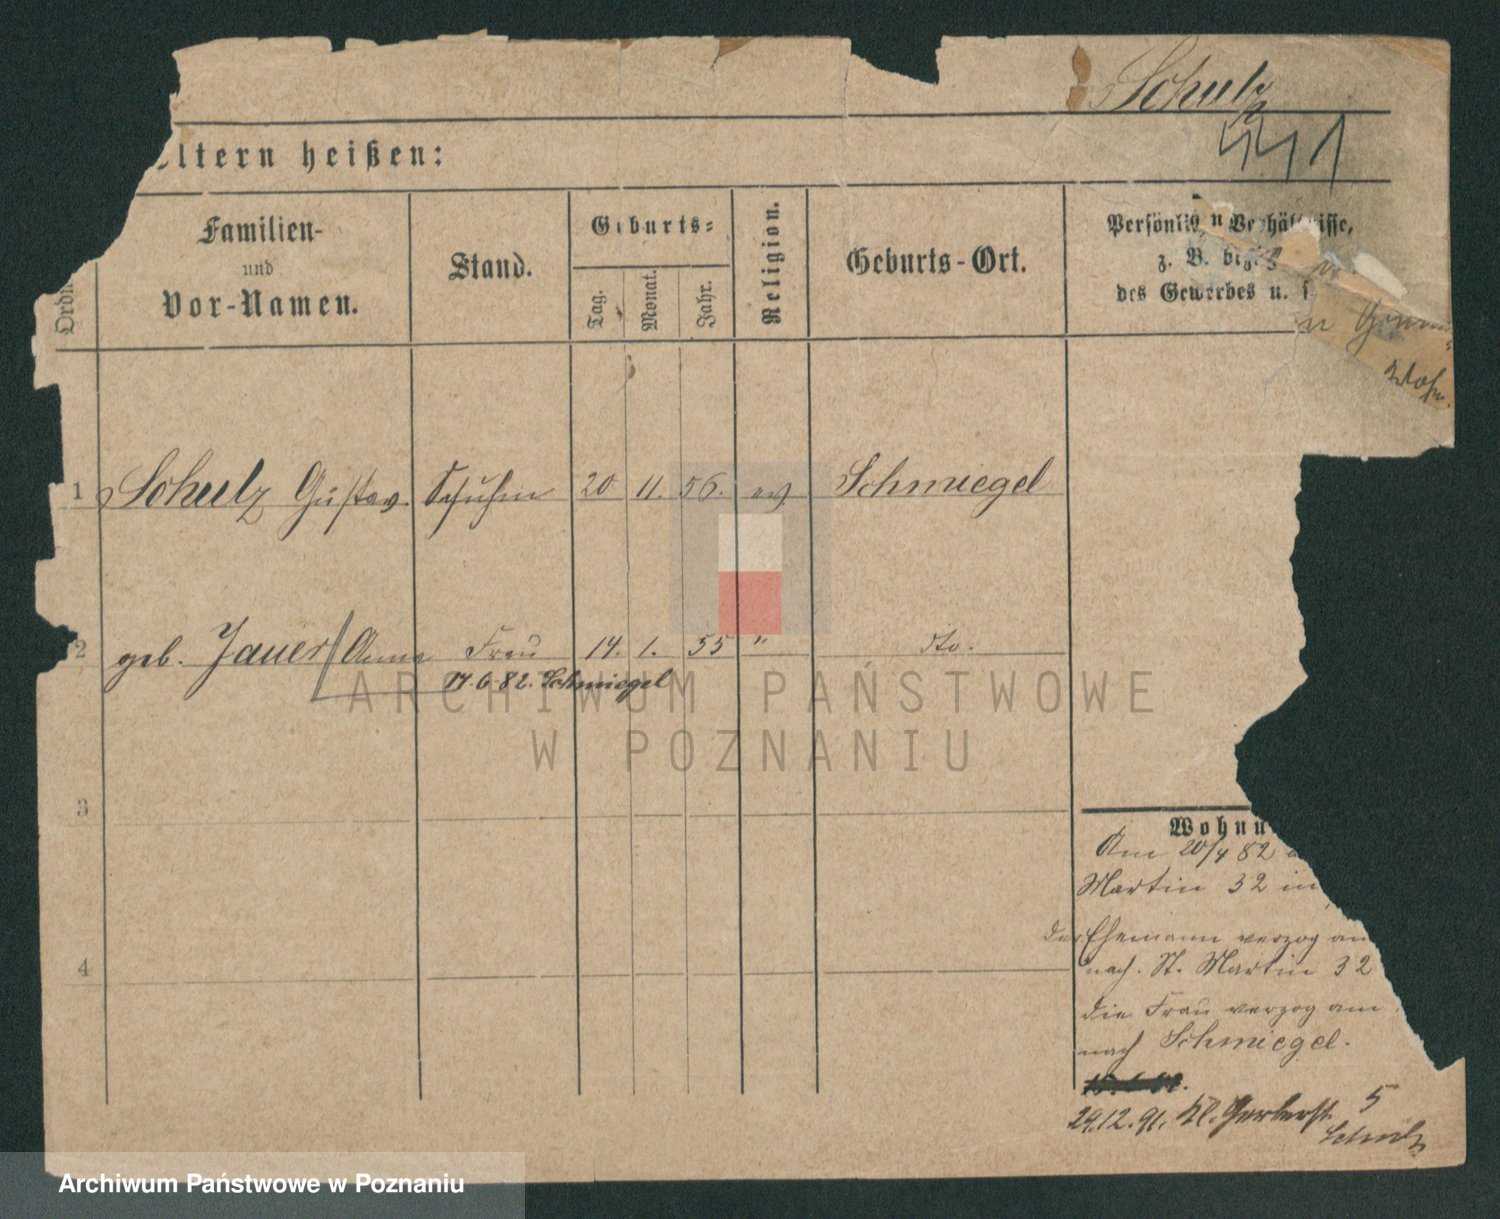 Schulz
441
ltern heißen:
Ordn
Familien-
und
Vor-Namen.
Stand.
Geburts-
Tag.
Monat.
Jahr.
Religion.
Geburts-Ort.
Persönlich Verhältnisse,
z. B. bezüg
des Gewerbes u. s
1 Schulz Gustav. Schuhm 20 11. 56. ev Schmiegel
2 geb. Jauer Anna Frau 14. 1. 55 " dto.
17.6.82. Schmiegel
3
4
Wohnu
Am 20/4 82
Martin 32 in
der Ehemann verzog am
nach. St. Martin 32
die Frau verzog am
nach Schmiegel.
29.12.91. Kl. Gerberst. 5
Schulz
ARCHIWUM PAŃSTWOWE
W POZNANIU
Archiwum Państwowe w Poznaniu